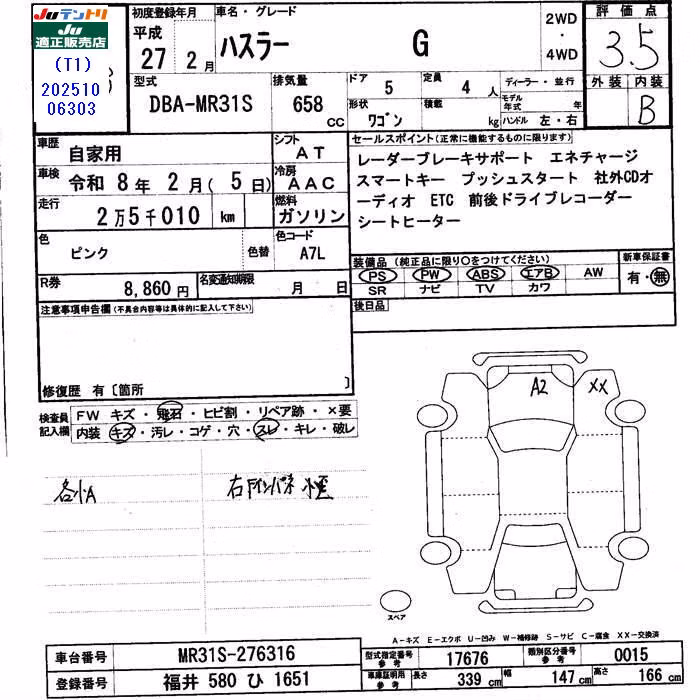 Juテントリ
Ju
適正販売店
(T1)
202510
06303
初度登録年月
平成
27年 2月
車名・グレード
ハスラー G
2WD
・
4WD
評価点
3.5
外装 内装
B
型式
DBA-MR31S
排気量
658
cc
ドア
5
定員
4人
形状
ワゴン
積載
kg
ディーラー・並行
モデル年式 年
ハンドル 左・右
車歴
自家用
シフト
AT
車検
令和 8年 2月( 5日)
冷房
AAC
走行
2万5千010 km
燃料
ガソリン
色
ピンク
色替
色コード
A7L
R券
8,860円
名変通知期限
月 日
セールスポイント(正常に機能するものに限ります)
レーダーブレーキサポート エネチャージ
スマートキー プッシュスタート 社外CDオ
ーディオ ETC 前後ドライブレコーダー
シートヒーター
装備品 (純正品に限り○をつけてください)
PS PW ABS エアB AW
SR ナビ TV カワ
新車保証書
有・無
後日品
注意事項申告欄(不具合内容等は具体的に記入して下さい)
修復歴 有〔箇所 〕
検査員
記入欄
FW キズ・飛石・ヒビ割・リペア跡・×要
内装 キズ・汚レ・コゲ・穴・スレ・キレ・破レ
各小A
A2
XX
スペア
A-キズ E-エクボ U-凹み W-補修跡 S-サビ C-腐食 XX-交換済
車台番号
MR31S-276316
型式指定番号
参考
17676
類別区分番号
参考
0015
登録番号
福井 580 ひ 1651
車庫証明用
参考
長さ
339 cm
幅
147 cm
高さ
166 cm